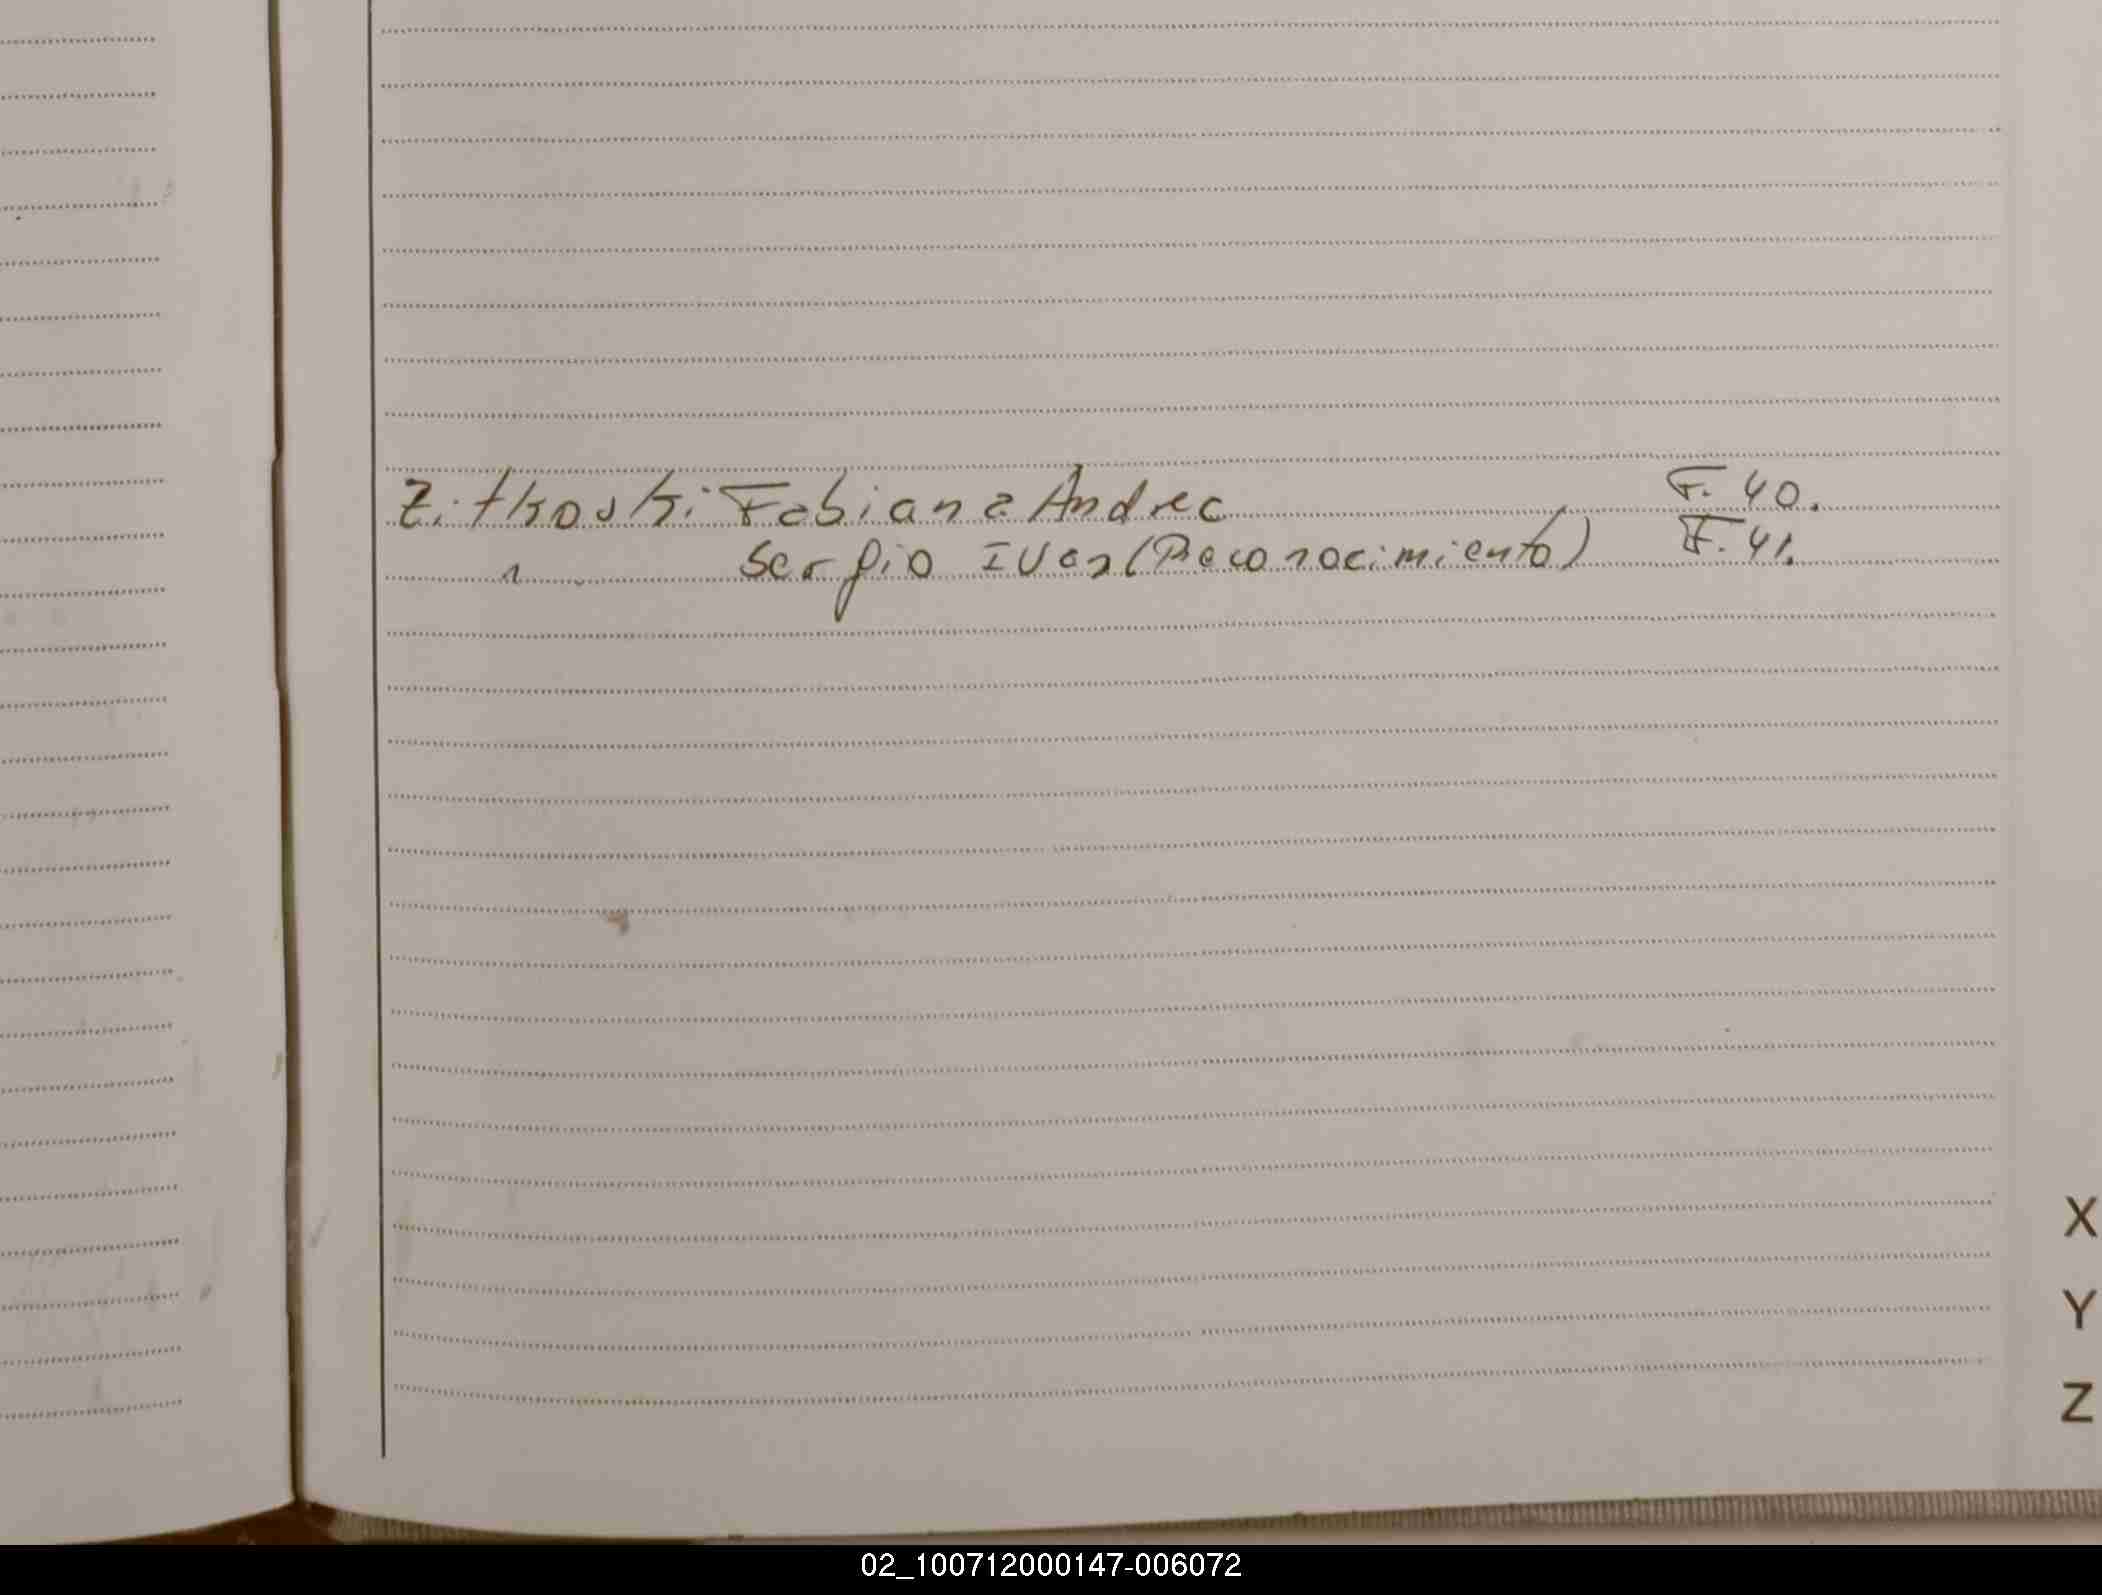 Zitkoski Fabiana Andrea F. 40.
" Sergio Ivan (Reconocimiento) F. 41.
X
Y
Z
02_100712000147-006072